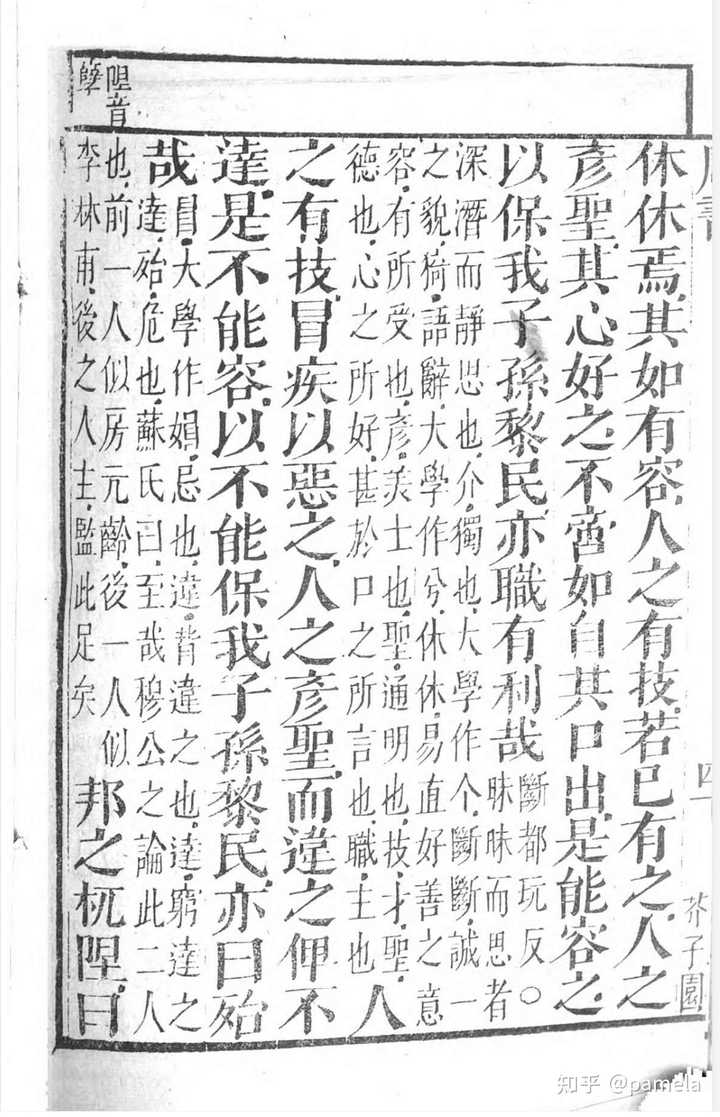 芥子園
休休焉.其如有容.人之有技.若已有之.人之
彥聖.其心好之.不啻如自其口出.是能容之.
以保我子孫黎民.亦職有利哉
斷都玩反○
昧昧而思者
深潛而靜思也.介獨也.大學作个.斷斷.誠一
之貌.猗.語辭.大學作兮.休休.易直好善之意
容.有所受也.彥.美士也.聖.通明也.技.才.聖.
德也.心之所好.甚於口之所言也.職.主也
人
之有技.冒疾以惡之.人之彥聖.而違之俾不
達.是不能容.以不能保我子孫黎民.亦曰殆
哉
冒.大學作媢.忌也.違.背違之也.達.窮達之
達.殆.危也.蘇氏曰.至哉穆公之論此二人
也.前一人似房元齡.後一人似
李林甫.後之人主.監此足矣
邦之杌隉.曰
隉音
孽
知乎 @pamela